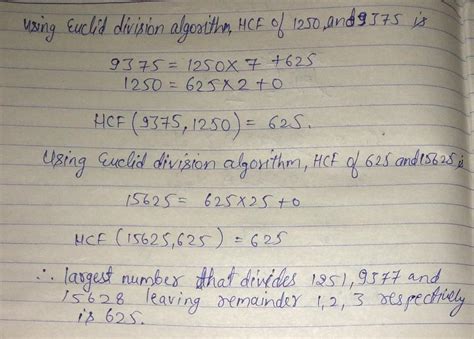 using Euclid division algosithm, HCF of 1250, and 9375 is
9375 = 1250 × 7 + 625
1250 = 625 × 2 + 0
HCF (9375, 1250) = 625.
Using Euclid division algorithm, HCF of 625 and 15625 is
15625 = 625 × 25 + 0
HCF (15625, 625) = 625
∴ largest number that divides 1251, 9377 and
15628 leaving remainder 1, 2, 3 respectively
is 625.